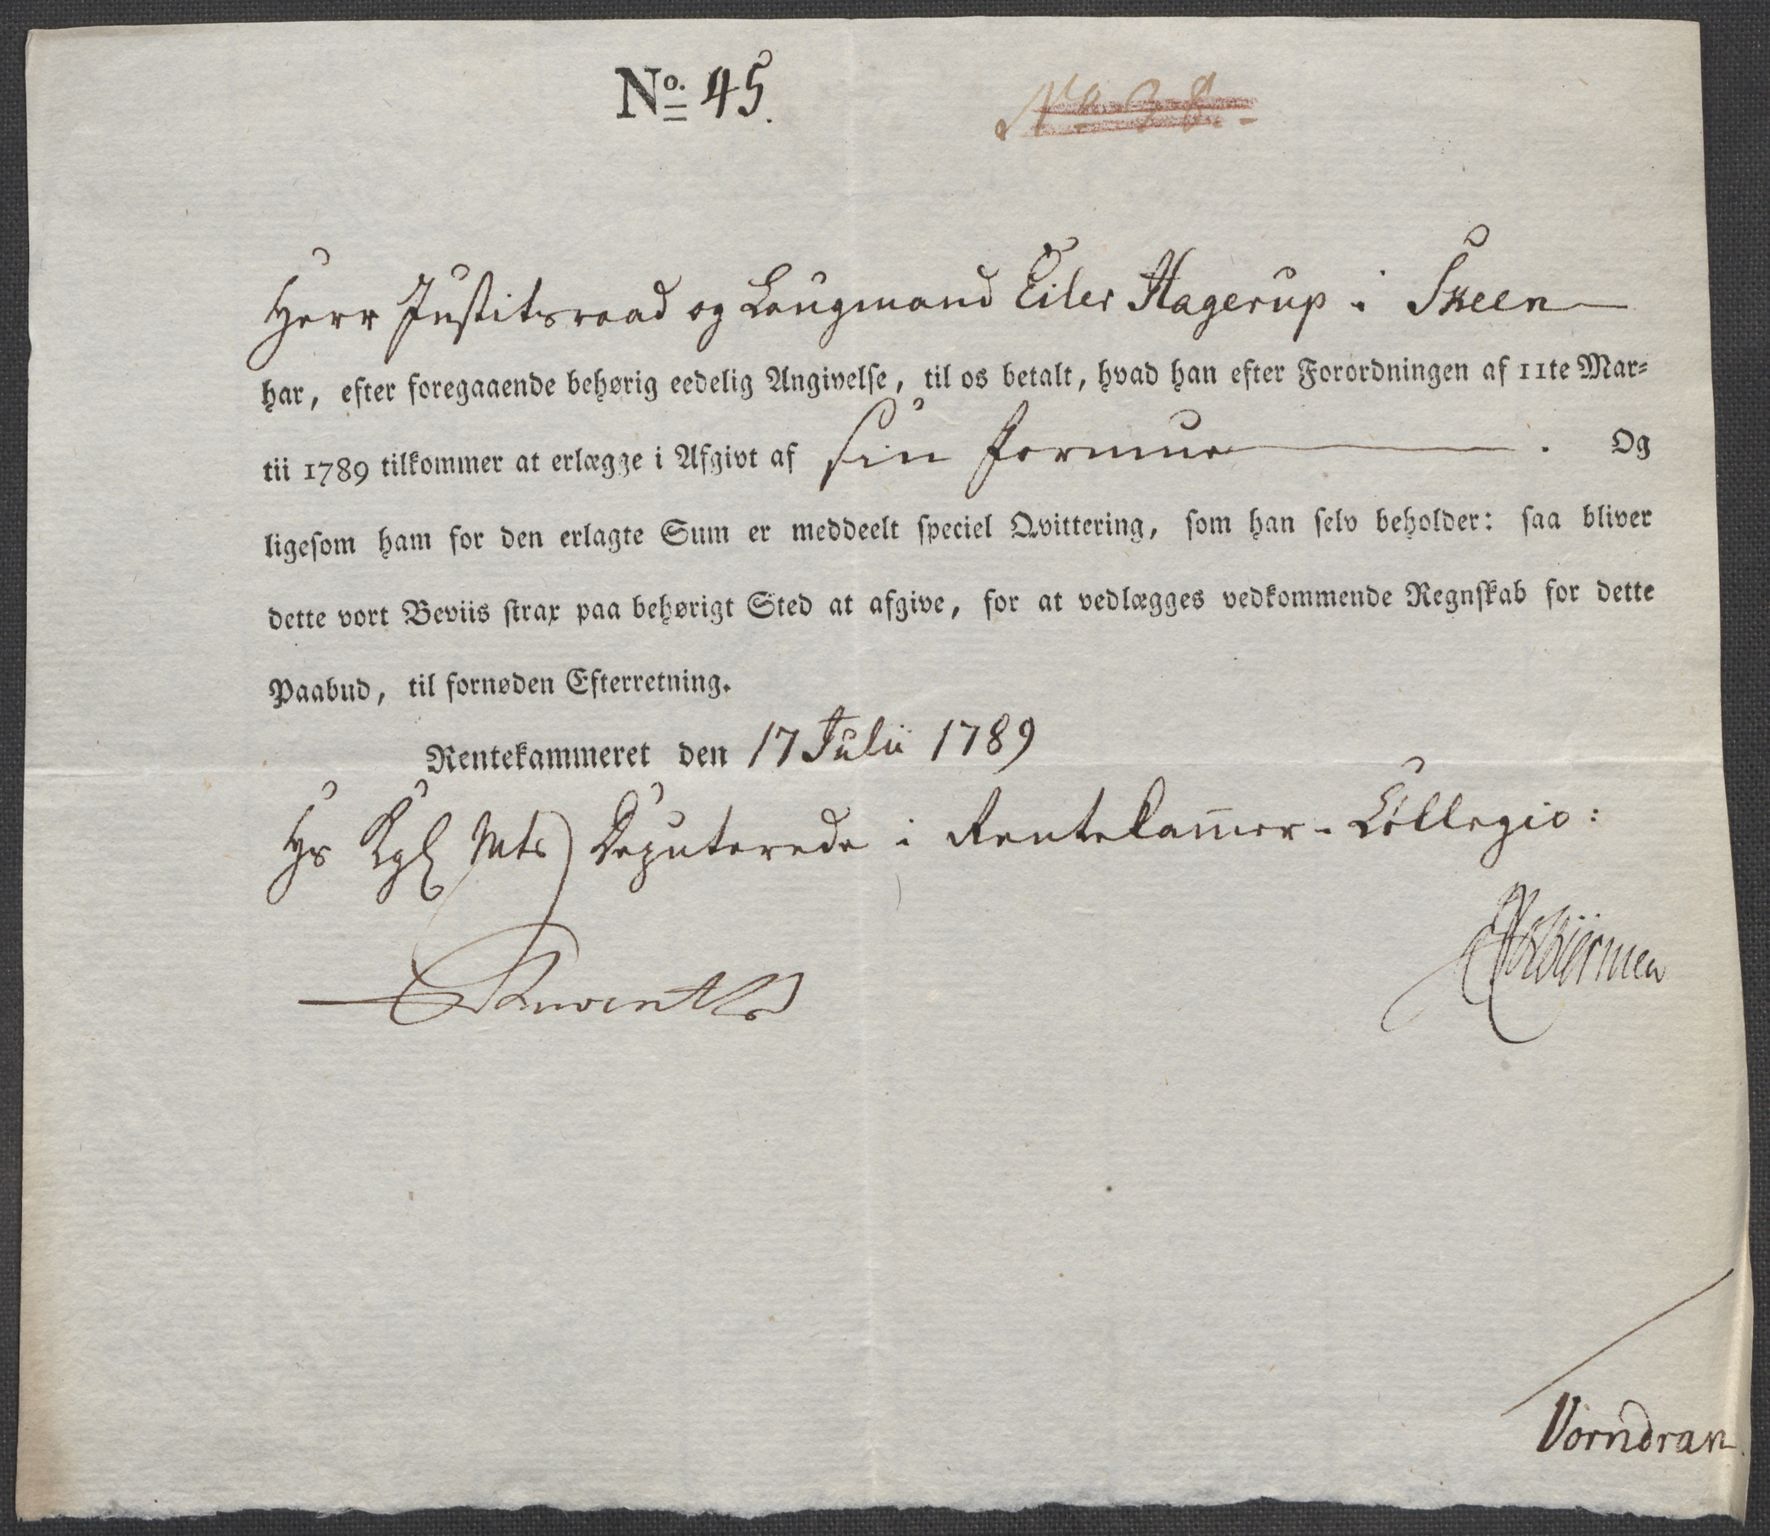 No. 45.
No 38.
Herr Justitsraad og Laugmand Eiler Hagerup i Skeen
har, efter foregaaende behørig eedelig Angivelse, til os betalt, hvad han efter Forordningen af 11te Mar-
tii 1789 tilkommer at erlægge i Afgivt af sin Formue. Og
ligesom ham for den erlagte Sum er meddeelt speciel Qvittering, som han selv beholder: saa bliver
dette vort Beviis strax paa behørigt Sted at afgive, for at vedlægges vedkommende Regnskab for dette
Paabud, til fornøden Efterretning.
Rentekammeret den 17 Julii 1789
Hs Kgl Mts Deputerede i Rentekammer-Collegio:
Vorndran